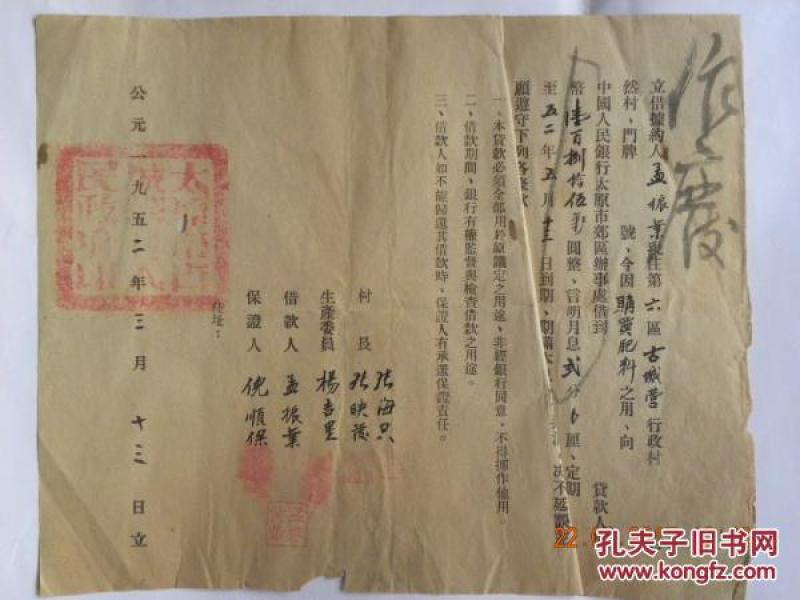 作廢
立借據約人孟振業現住第六區古城營行政村
然村、門牌　號、今因購買肥料之用、向
中國人民銀行太原市郊區辦事處借到
貸款人
幣壹百捌拾伍　圓整、言明月息弍分　厘、定期
至五二年五月十三日到期、期滿本　決不延誤
願遵守下列各條款
一、本貸款必須全部用於原議定之用途、非經銀行同意、不得挪作他用。
二、借款期間、銀行有權監督與檢查借款之用途。
三、借款人如不能歸還其借款時、保證人有承還保證責任。
村長　張海只
張映茂
生產委員　楊吉星
借款人　孟振業
保證人　倪順保
住址：
公元一九五二年三月十三日立
孔夫子旧书网
www.kongfz.com